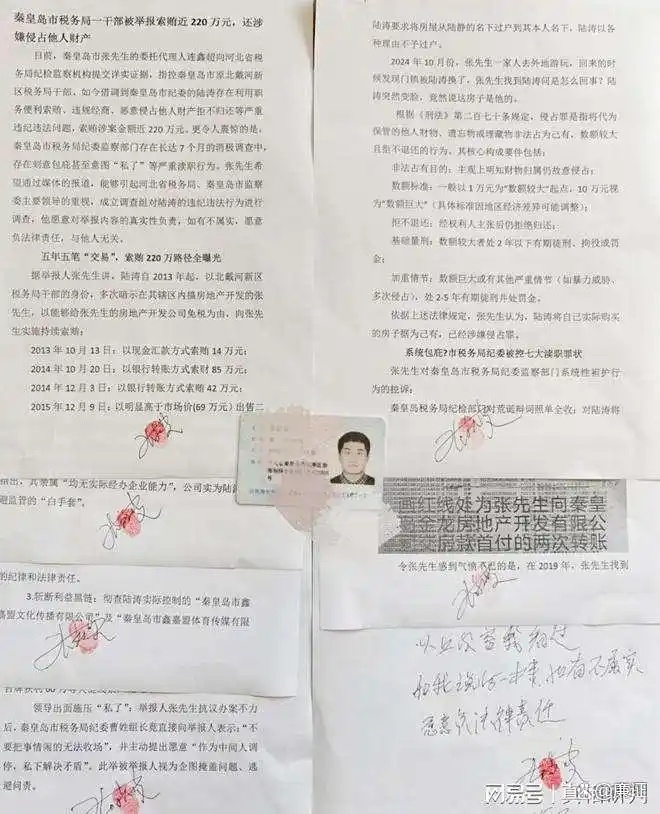 秦皇岛市税务局一干部被举报索贿近 220 万元，还涉
嫌侵占他人财产
目前，秦皇岛市张先生的委托代理人连鑫超向河北省税
务局纪检监察机构提交详实证据，指控秦皇岛市原北戴河新
区税务局干部、如今借调到秦皇岛市纪委的陆涛存在利用职
务便利索贿、违规经商、恶意侵占他人财产拒不归还等严重
违纪违法问题，索贿涉案金额近 220 万元。更令人震惊的是，
秦皇岛市税务局纪委监察部门存在长达 7 个月的消极调查中，
存在刻意包庇甚至意图“私了”等严重渎职行为。张先生希
望通过媒体的报道，能够引起河北省税务局、秦皇岛市监察
委主要领导的重视，成立调查组对陆涛的违纪违法行为进行
调查，他愿意对举报内容的真实性负责，如有不属实，愿意
负法律责任，与他人无关。
五年五笔“交易”，索贿 220 万路径全曝光
据举报人张先生讲，陆涛自 2013 年起，以北戴河新区
税务局干部的身份，多次暗示在其辖区内搞房地产开发的张
先生，以能够给张先生的房地产开发公司免税为由，向张先
生实施持续索贿：
2013 年 10 月 13 日：以现金汇款方式索贿 14 万元；
2014 年 10 月 20 日：以银行转账方式索财 85 万元；
2014 年 12 月 3 日：以银行转账方式索贿 42 万元；
2015 年 12 月 9 日：以明显高于市场价(69 万元）出售二
指出，其亲属“均无实际经办企业能力”，公司实为陆
避监管的“白手套”。
的纪律和法律责任。
3.斩断利益黑链：彻查陆涛实际控制的“秦皇岛市鑫
嘉盟文化传播有限公司”及“秦皇岛市鑫嘉盟体育传媒有限
领导出面施压“私了”：举报人张先生抗议办案不力
后，秦皇岛市税务局纪委曹姓组长竟直接向举报人表示：“不
要把事情闹的无法收场”，并主动提出愿意“作为中间人调
停，私下解决矛盾”。此举被举报人视为企图掩盖问题、逃
避问责。
陆涛要求将房屋从陆静的名下过户到其本人名下，陆涛以各
种理由不予过户。
2024 年 10 月份，张先生一家人去外地游玩，回来的时
候发现门锁被陆涛换了，张先生找到陆涛问是怎么回事？陆
涛突然变脸，竟然说这房子是他的。
根据《刑法》第二百七十条规定，侵占罪是指将代为
保管的他人财物、遗忘物或埋藏物非法占为己有，数额较大
且拒不退还的行为。其核心构成要件包括：
非法占有目的：主观上明知财物归属仍故意侵占；
数额标准：一般以 1 万元为“数额较大”起点，10 万元视
为“数额巨大”（具体标准因地区经济差异可能调整）；
拒不退还：经权利人主张后仍拒绝归还；
基础量刑：数额较大者处 2 年以下有期徒刑、拘役或罚
金；
加重情节：数额巨大或有其他严重情节（如暴力威胁、
多次侵占），处 2-5 年有期徒刑并处罚金。
依据上述法律规定，张先生认为，陆涛将自己实际购买
的房子据为己有，已经涉嫌侵占罪。
系统包庇?市税务局纪委被控七大渎职罪状
张先生对秦皇岛市税务局纪委监察部门系统性袒护行
为的控诉：
秦皇岛税务局纪检部门对荒诞辩词照单全收：对陆涛将
画红线处为张先生向秦皇
岛金龙房地产开发有限公
司交房款首付的两次转账
令张先生感到气愤不已的是，在 2019 年，张先生找到
愿意负法律责任
网易号